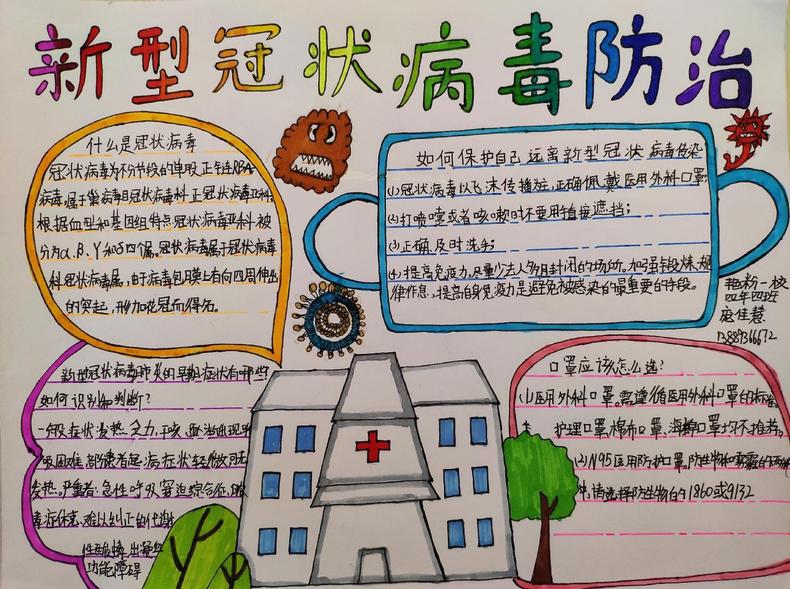 新型冠状病毒防治
什么是冠状病毒
冠状病毒为不分节段的单股正链RBA
病毒,属于巢病毒目冠状病毒科正冠状病毒亚科,
根据血型和基因组特点冠状病毒亚科被
分为α、β、γ和δ四个属。冠状病毒属于冠状病毒
科冠状病毒属,由于病毒包膜上有向四周伸出
的突起,形如花冠而得名。
如何保护自己远离新型冠状病毒传染
(1)冠状病毒以飞沫传播为主,正确佩戴医用外科口罩;
(2)打喷嚏或者咳嗽时不要用手直接遮挡;
(3)正确,及时洗手;
(4)提高免疫力,尽量少去人多且封闭的场所。加强锻炼、规
律作息,提高自身免疫力是避免被感染的最重要的手段。
一校
四年四班
佳慧
13887366672
新型冠状病毒肺炎的早期症状有哪些?
如何识别和判断?
一般症状发热、乏力、干咳、逐渐出现呼
吸困难,部分患者起病症状轻微,可无
发热。严重者:急性呼吸窘迫综合征、脓
毒症休克、难以纠正的代谢
性酸中毒,出凝血
功能障碍
口罩应该怎么选?
(1)医用外科口罩。需遵循医用外科口罩的标准。
护理口罩,棉布口罩,海绵口罩均不推荐。
(2)N95医用防护口罩,防生物和
请选择防生物的1860或9132